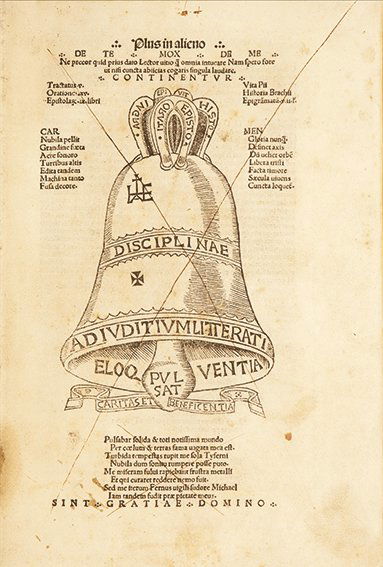 Plus in alieno
DE TE MOX DE ME
Ne precor quid prius daro Lector uitio ꝙ omnia intueare Nam spero fore
ut nisi cuncta abiicias cogaris singula laudare.
CONTINENTVR
Tractatus
Orationes
Epistolaꝝ libri
Vita Pii
Historia Brachii
Epigrāmata
MAGNI
EPI
VIT
HISTO
IMARO
EPISTO
CAR
Nubila pellit
Grandine fœta
Aere sonoro
Turribus altis
Edita tandem
Machina tanto
Fusa decore.
MEN
Gloria nunꝙ
Desinet axis
Dū uehet orbē
Libera tristi
Facta timore
Sæcula uiuens
Cuncta loquet
DISCIPLINAE
AD IVDITIVM LITTERATI
ELOQ VENTIA
PVL
SAT
CARITAS ET BENEFICENTIA
Pulsabar solida & toti notissima mundo
Per cœlum & terras fama uagata mea est.
Turbida tempestas rupit me sola Tyferni
Nubila dum sonitu rumpere posse puto.
Me miseram fului rapiebant frustra metalli
Et qui curaret reddere nemo fuit.
Sed me iterum Fernus uigili sudore Michael
Iam tandem fudit præ pietate meus.
SINT GRATIAE DOMINO